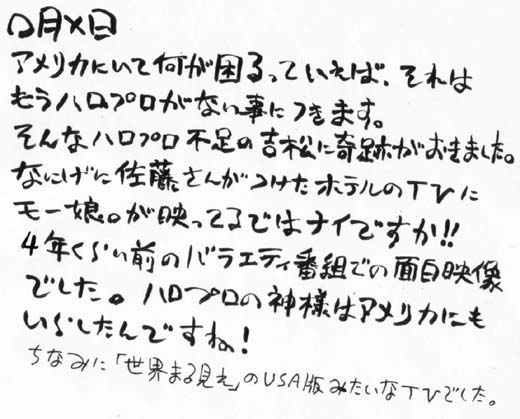 〇月×日
アメリカにいて何が困るっていえば、それは
もうハロプロがない事につきます。
そんなハロプロ不足の吉松に奇跡がおきました。
なにげに佐藤さんがつけたホテルのTVに
モー娘。が映ってるではナイですか!!
4年くらい前のバラエティ番組での面白映像
でした。ハロプロの神様はアメリカにも
いらしたんですね!
ちなみに「世界まる見え」のUSA版みたいなTVでした。